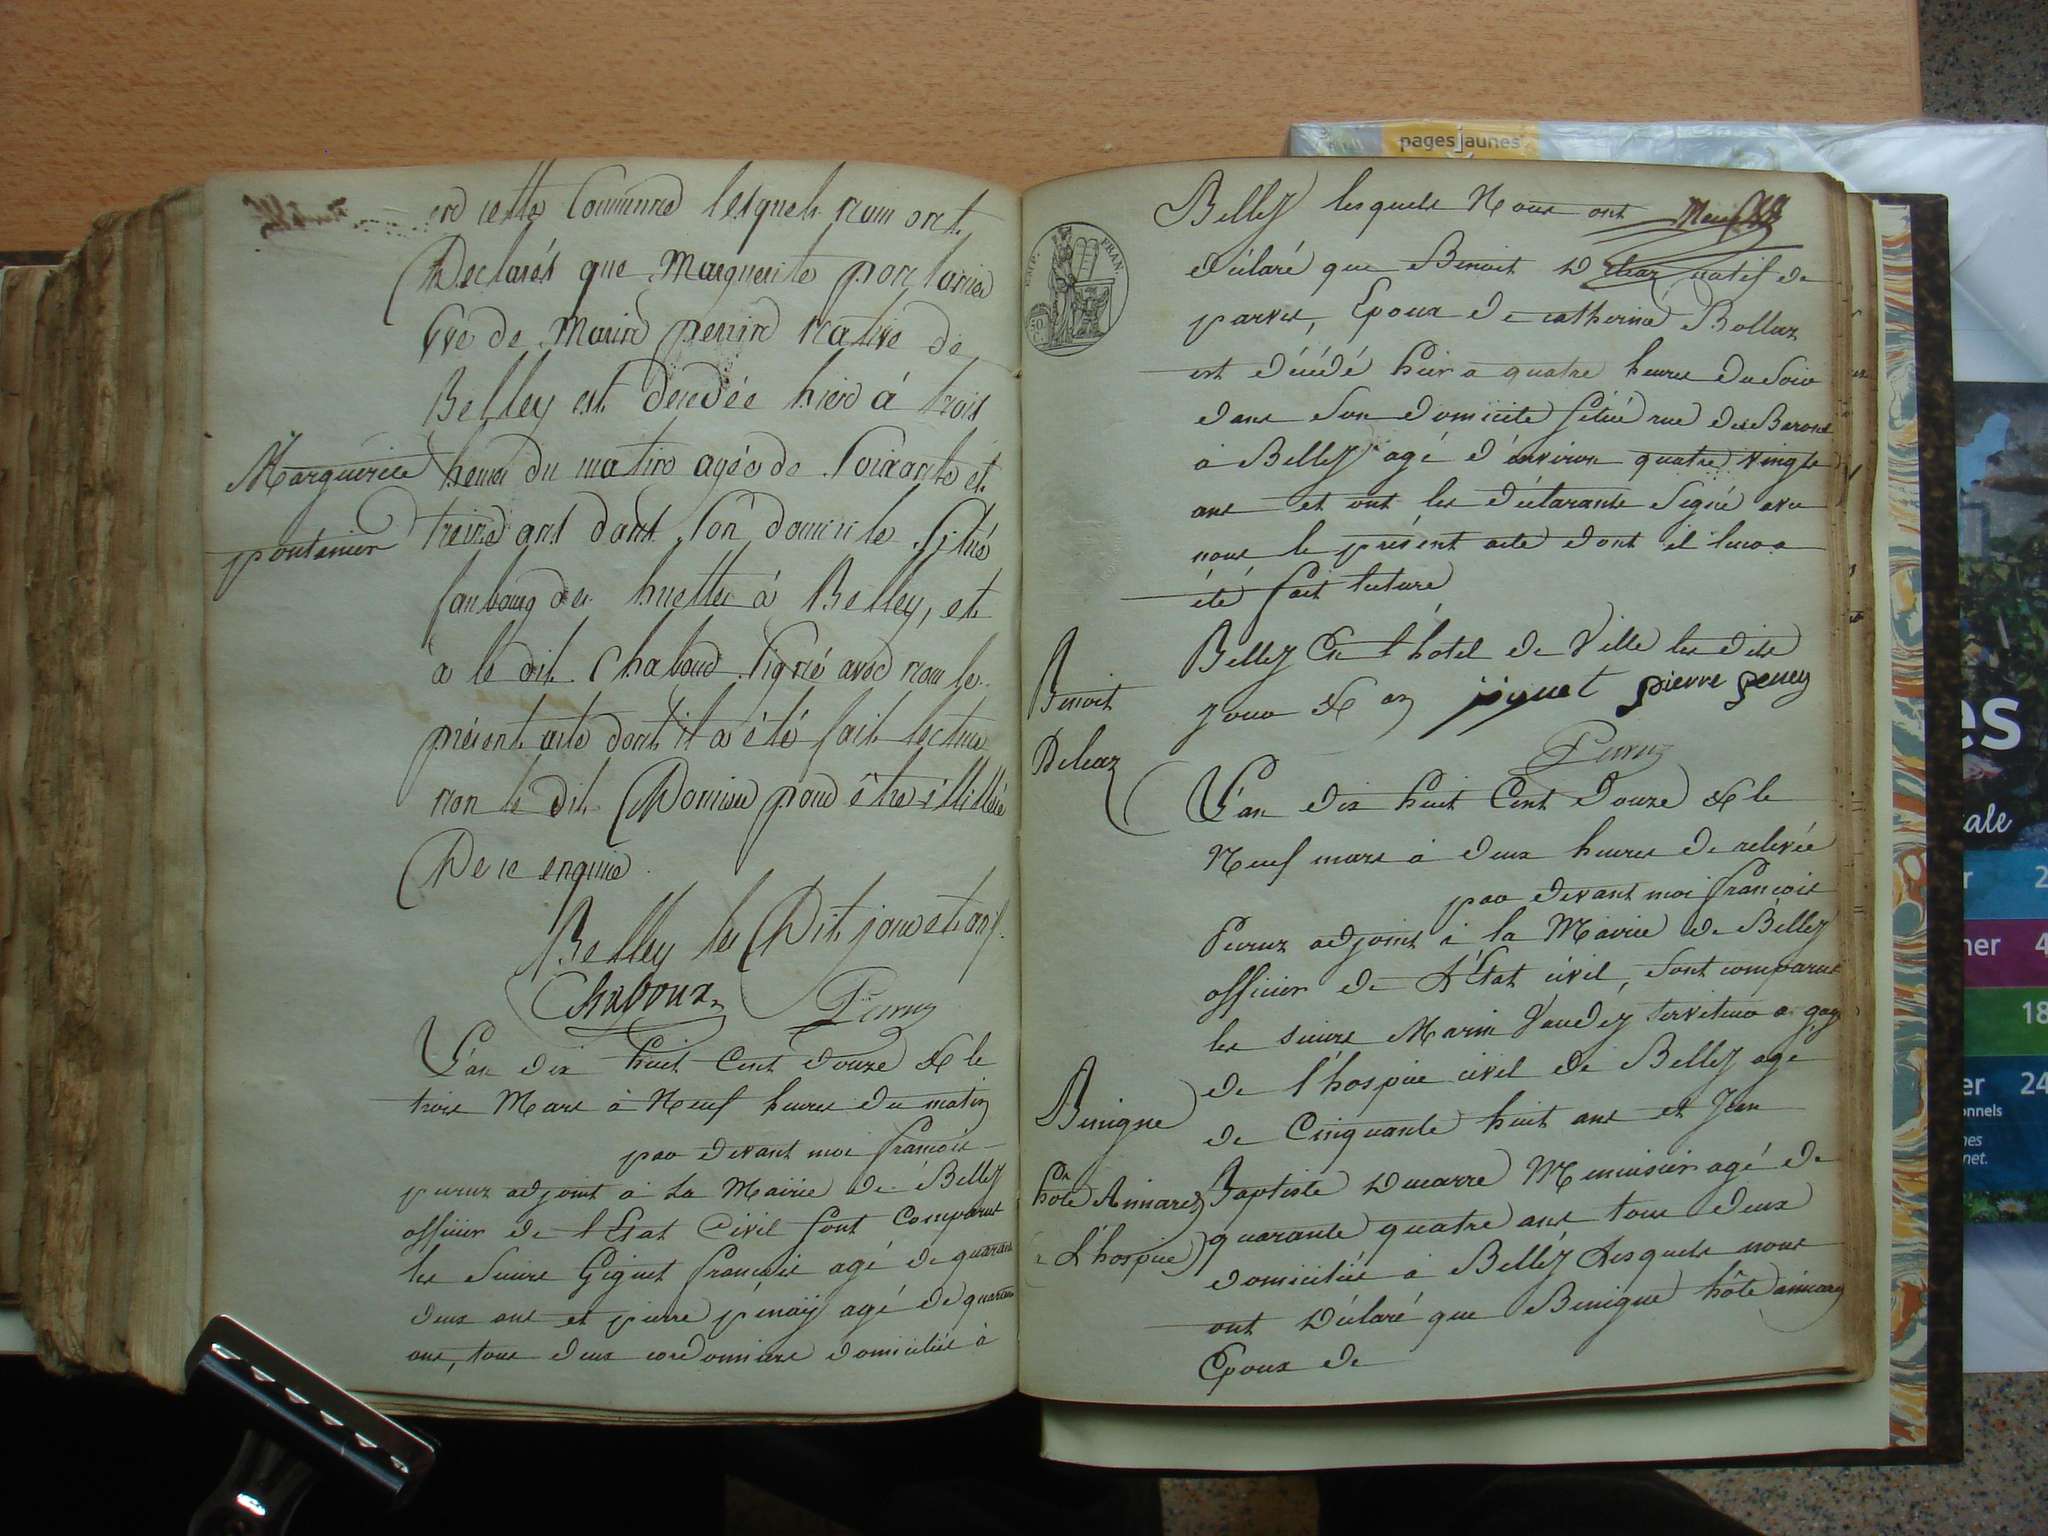 en cette Commune lesquels nous ont
Déclarés que Marguerite pontanier
Vve de Marin perrin native de
Belley est décédée hier à trois
Marguerite
pontanier
heures du matin agée de Soixante et
treize ans dans son domicile situé
faubourg des huettes à Belley, et
a le dit Chaboud signé avec nous le
présent acte dont il a été fait lecture
non le dit pour être illitéré
De ce enquise
Belley les Dit jour et an
Chaboux Peruz
L'an dix huit Cent douze & le
trois Mars à Neuf heures du matin
par devant moi françois
peruz adjoint à la Mairie de Belley
officier de l'Etat Civil sont Comparus
les Sieurs Giguet françois agé de quarante
deux ans et pierre pénay agé de quarante
ans, tous deux cordonniers domiciliés à
EMP. FRAN.
50
Belley lesquels Nous ont
déclaré que Benoit Delear natif de
parves, Epoux de catherine Bollear
est décédé hier a quatre heures du Soir
dans Son domicile situé rue des Barons
à Belley agé d'environ quatre vingts
ans et ont les déclarants Signé avec
nous le présent acte dont il leur a
été fait lecture
Belley En l'hotel de Ville les dits
jour & an jiguet pierre peney
Peruz
Benoit
Delear
L'an dix huit Cent douze & le
Neuf mars à deux heures de relevée
par devant moi françois
Peruz adjoint à la Mairie de Belley
officier de L'Etat civil, sont comparus
les sieurs Marin Vaudey serviteur a gage
de l'hospice civil de Belley agé
de Cinquante huit ans et Jean
Benigne
hôte Annarey
à L'hospice
Baptiste Ducarre Menuisier agé de
quarante quatre ans tous deux
domiciliés à Belley Lesquels nous
ont Déclaré que Benigne hôte annarey
Epoux de
pagesjaunes
es
ale
2
ner 4
18
er 24
onnels
nes
net.